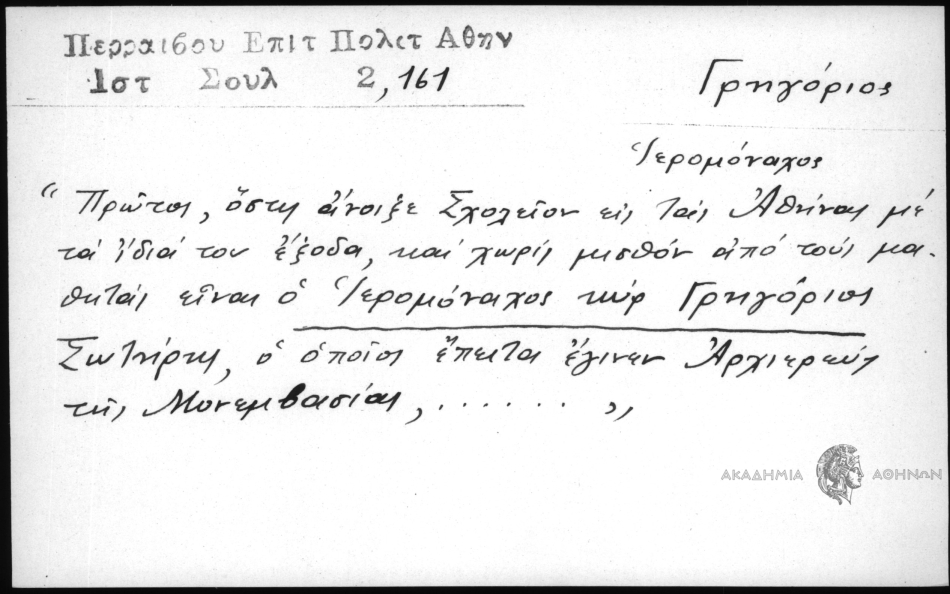 Περραιβου Επιτ Πολετ Αθην
Ιστ Σουλ 2,161
Γρηγόριος
Ἱερομόναχος
“ Πρῶτος, ὅστις ἄνοιξε Σχολεῖον εἰς τὰς Ἀθήνας μέ
τά ἴδιά του ἔξοδα, καί χωρίς μισθόν ἀπό τούς μα-
θητάς εἶναι ὁ Ἱερομόναχος κύρ Γρηγόριος
Σωτήρης, ὁ ὁποῖος ἔπειτα ἔγινεν Ἀρχιερεύς
τῆς Μονεμβασίας, ...... ,,
ΑΚΑΔΗΜΙΑ ΑΘΗΝΩΝ